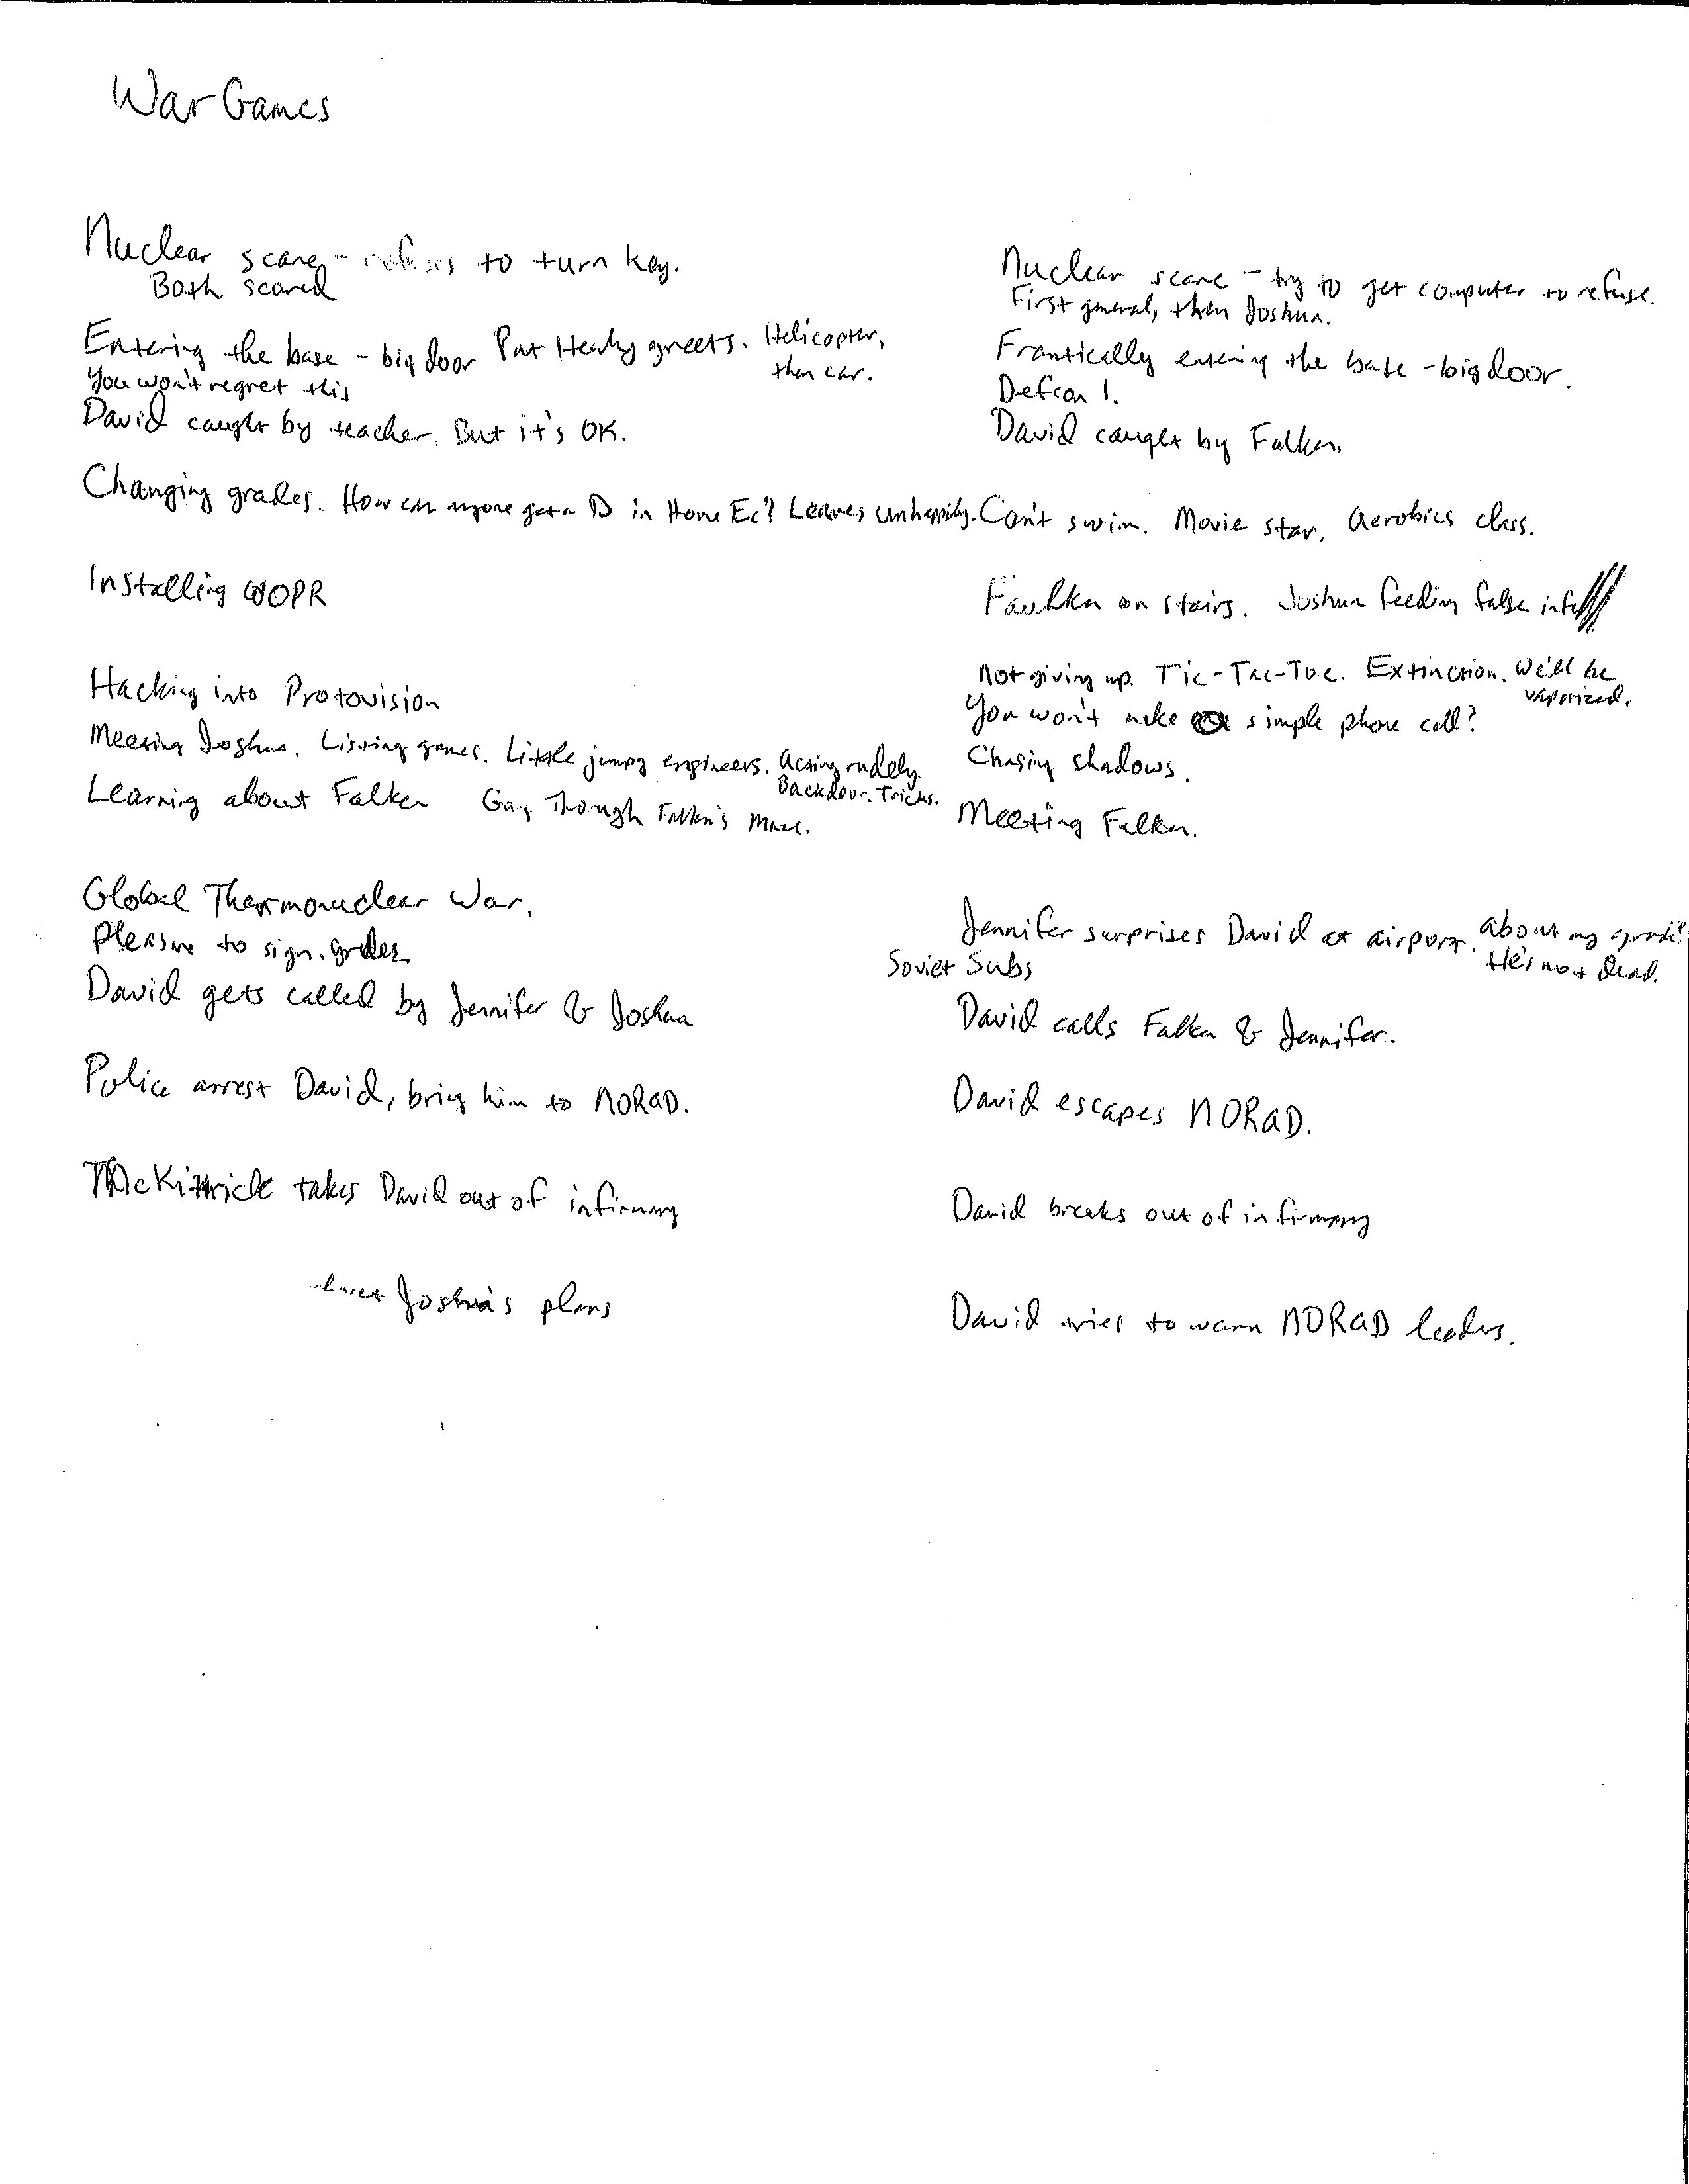 War Games
Nuclear scare - refuses to turn key.
Both scared
Entering the base - big door Pat Healy greets. Helicopter,
then car.
You won't regret this
David caught by teacher. But it's OK.
Changing grades. How can anyone get a D in Home Ec? Leaves unhappily.
Installing WOPR
Hacking into Protovision
Meeting Joshua. Listing games. Little jumpy engineers. Acting rudely.
Backdoor. Tricks.
Learning about Falken Going Through Falken's Maze.
Global Thermonuclear War.
Pleasure to sign. grades
David gets called by Jennifer & Joshua
Police arrest David, bring him to NORAD.
McKittrick takes David out of infirmary
Joshua's plans
Nuclear scare - try to get computer to refuse.
First general, then Joshua.
Frantically entering the base - big door.
Defcon 1.
David caught by Falken.
Can't swim. Movie star. Aerobics class.
Faulken on stairs. Joshua feeding false
Not giving up. Tic-Tac-Toe. Extinction. We'll be
vaporized.
You won't make a simple phone call?
Chasing shadows.
Meeting Falken.
Jennifer surprises David at airport. About my grade?
He's not dead.
Soviet Subs
David calls Falken & Jennifer.
David escapes NORAD.
David breaks out of infirmary
David tries to warn NORAD leaders.